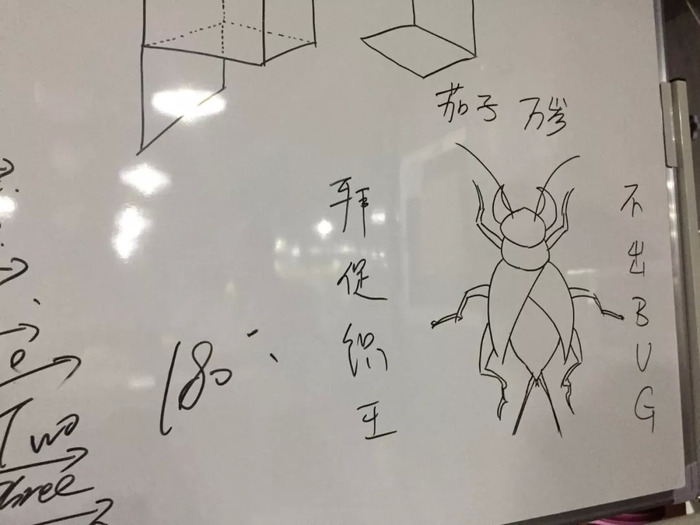 茄子 万岁
拜促织王
不出BUG
180°
e
Two
three